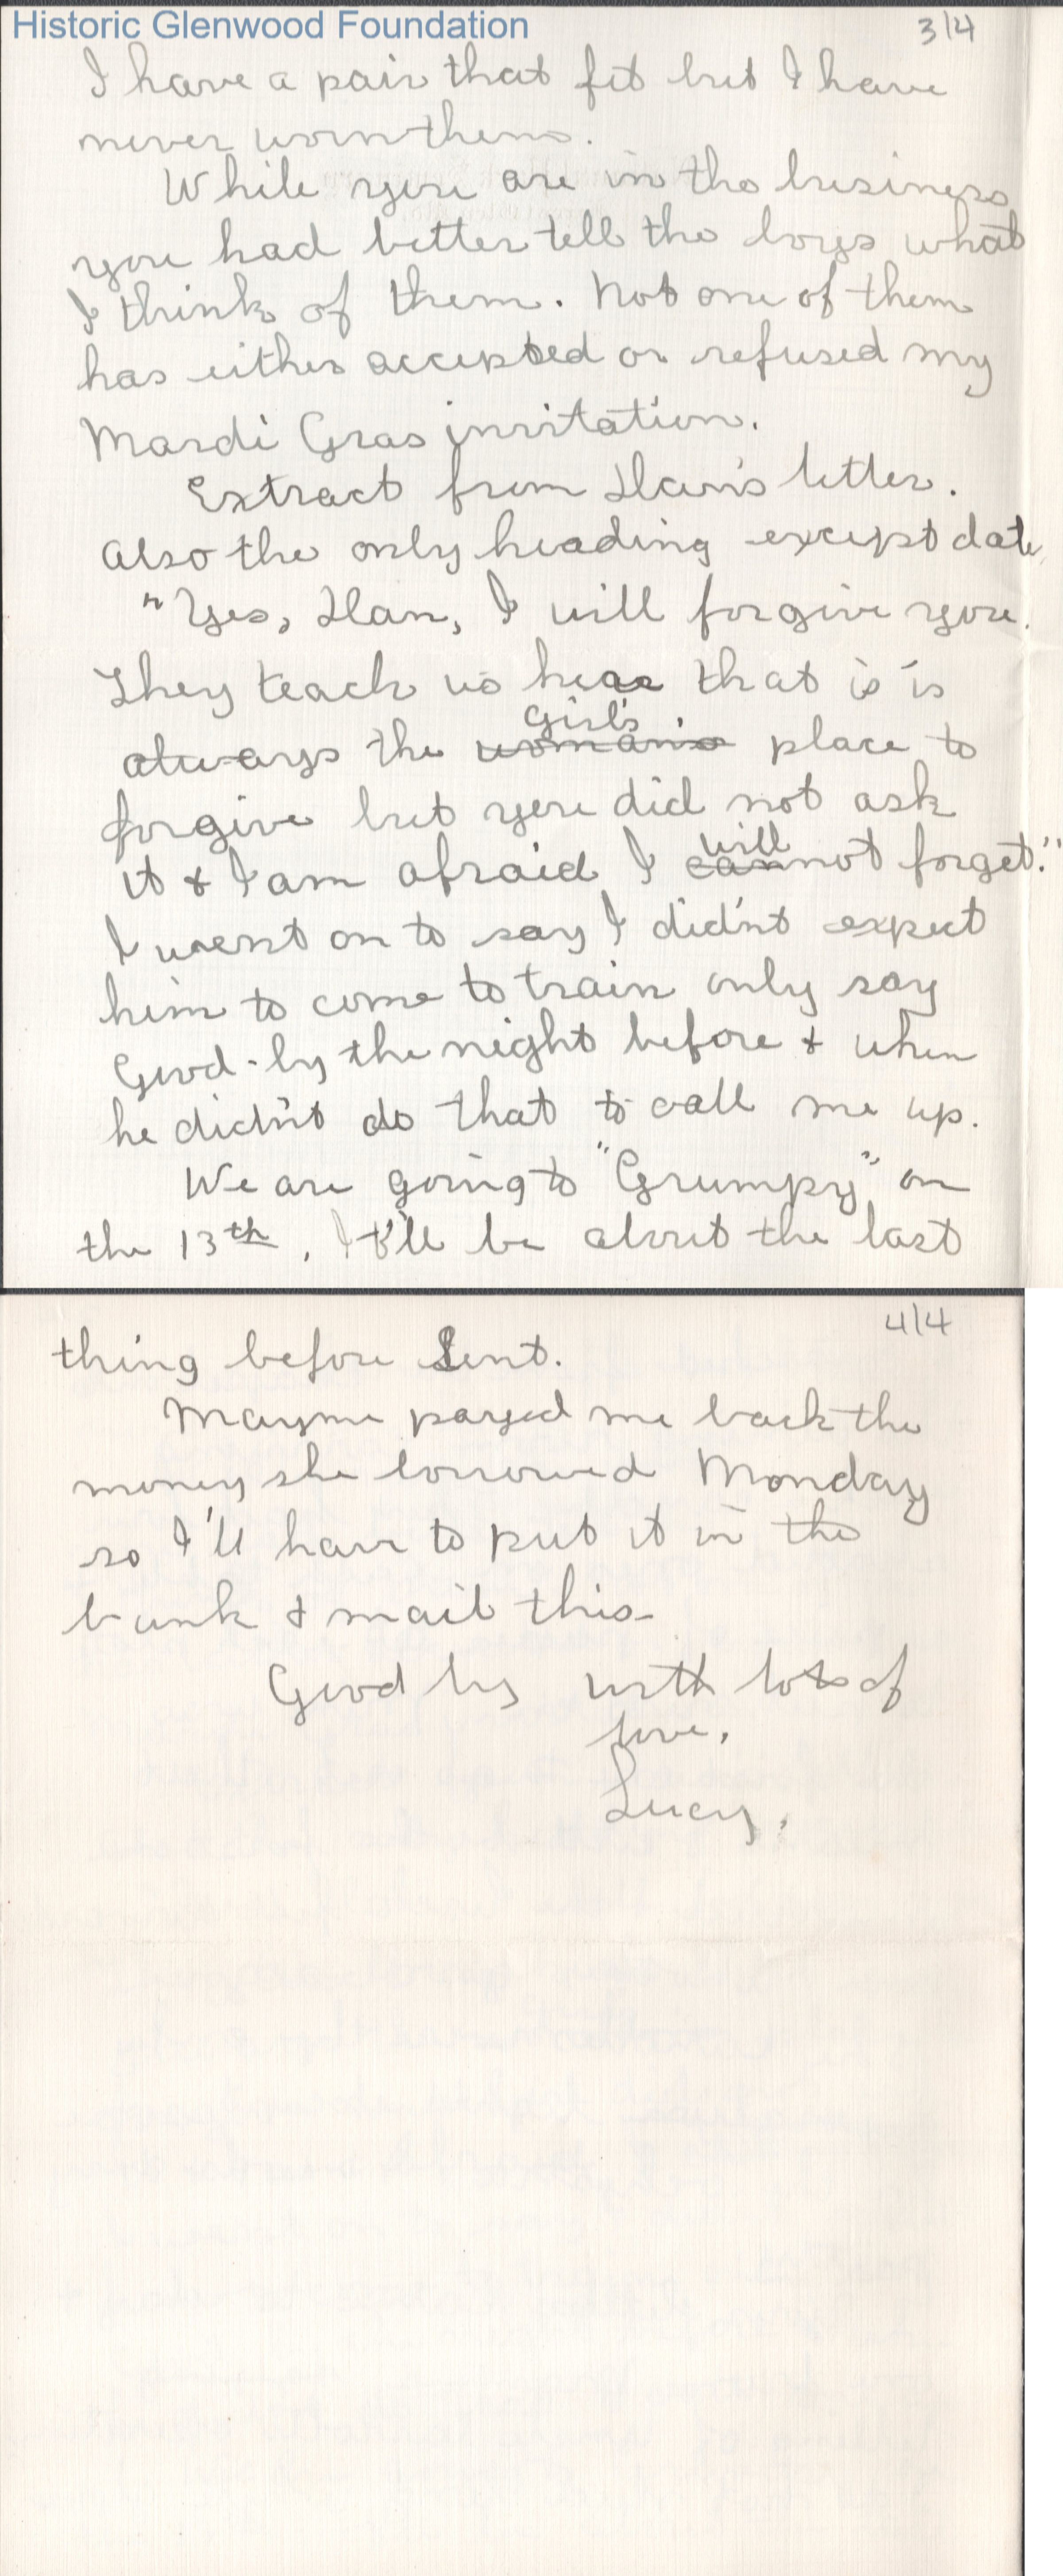 Historic Glenwood Foundation
3/4
I have a pair that fit but I have
never worn them.
While you are in the business
you had better tell the boys what
I think of them. Not one of them
has either accepted or refused my
Mardi Gras invitation.
Extract from Ilan's letter.
Also the only heading except date.
"Yes, Ilan, I will forgive you.
They teach us here that is is
girl's
always the woman's place to
forgive but you did not ask
will
it & I am afraid I cannot forget."
I went on to say I did'nt expect
him to come to train only say
Good-by the night before & when
he did'nt do that to call me up.
We are going to "Grumpy" on
the 13th. It'll be about the last
4/4
thing before Lent.
Mayme payed me back the
money she borrowed Monday
so I'll have to put it in the
bank & mail this-
Good by with lots of
love,
Lucy.